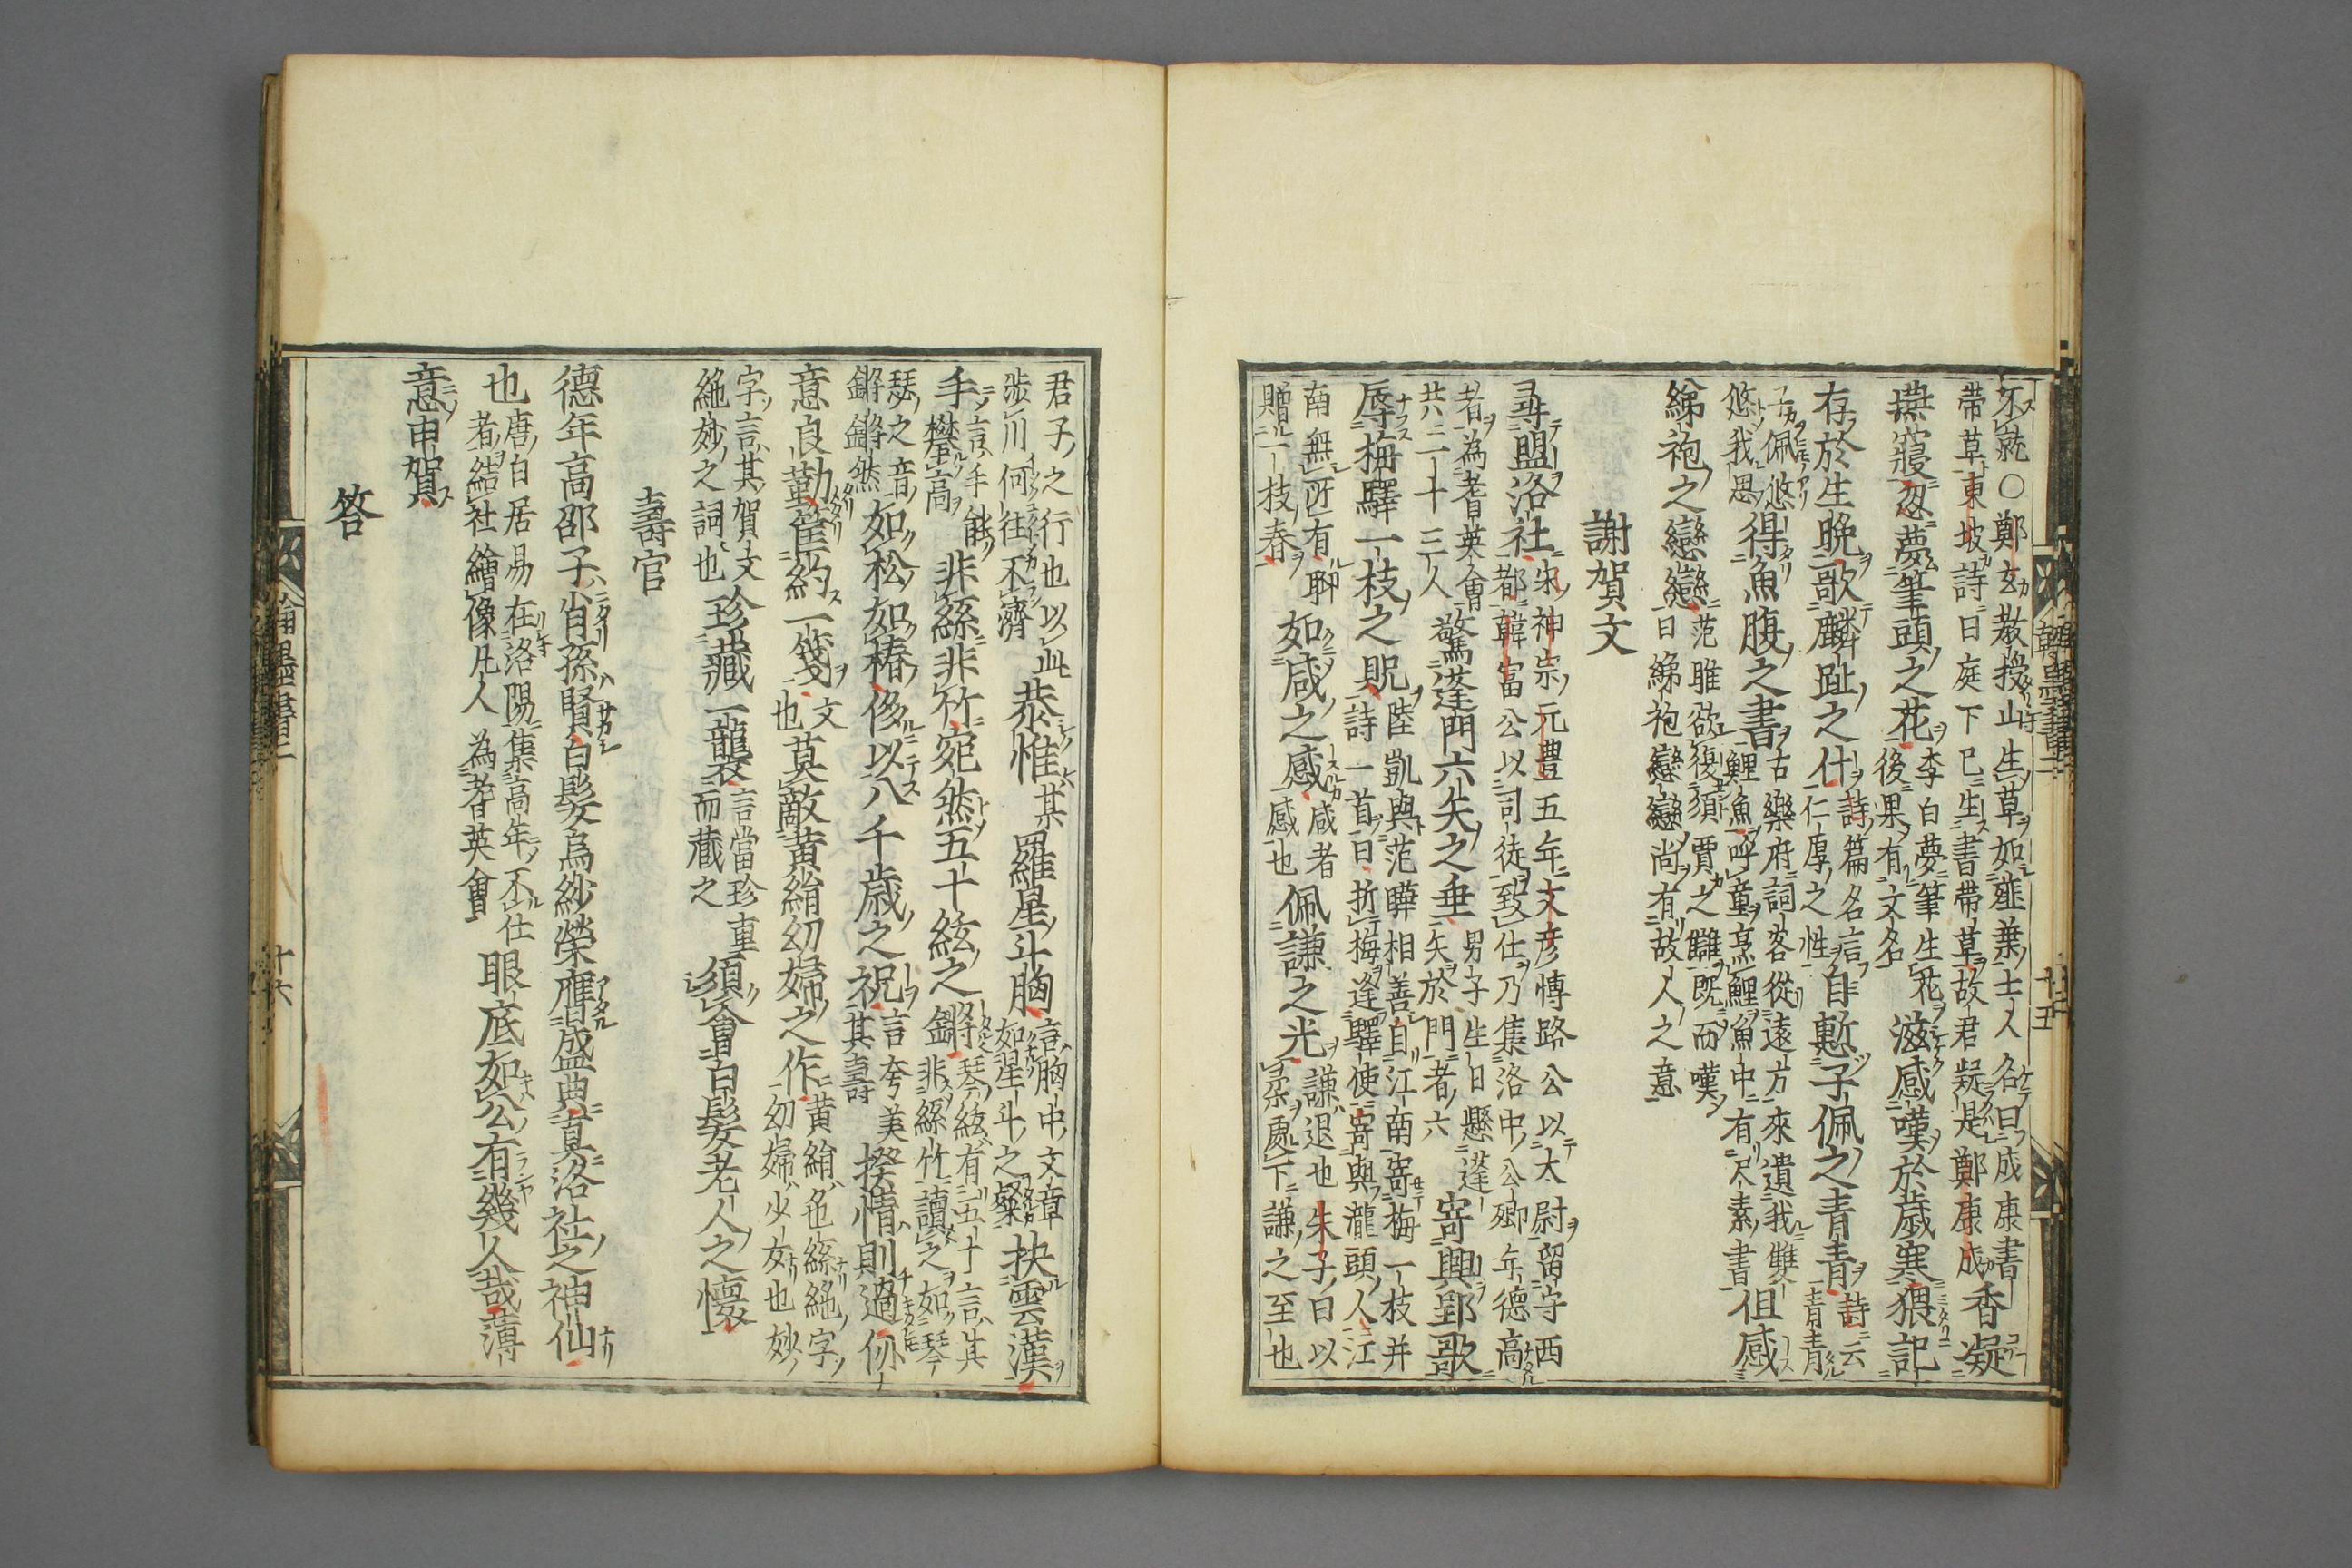 不就○鄭玄教授山生草如薤葉士人名曰成康書
帶草東坡詩曰庭下已生書帶草故君疑是鄭康成香凝
燕寢忽夢筆頭之花李白夢筆生花
後果有文名滋感嘆於歲寒猥記
存於生晚歌麟趾之什詩篇名言
仁厚之性自慙子佩之青青詩云
青青
子佩悠
悠我思得魚腹之書古樂府詞客從遠方來遺我雙
鯉魚呼童烹鯉魚中有尺素書但感
綈袍之戀戀范雎欲復須賈之讎既而嘆
曰綈袍戀戀尚有故人之意
謝賀文
尋盟洛社宋神宗元豊五年文彦博路公以太尉留守西
都韓富公以司徒致仕乃集洛中公卿年德高
者為耆英會
共二十三人驚蓬門六矢之垂男子生日懸蓬
矢於門者六寄興郢歌
辱梅驛一枝之貺陸凱與范曄相善自江南寄梅一枝并
詩一首曰折梅逢驛使寄與瀧頭人江
南無所有聊
贈一枝春如咸之感咸者
感也佩謙之光謙退也朱子曰以
柔處下謙之至也
君子之行也以此
涉川何往不濟恭惟某羅星斗胸言胸中文章
如星斗之粲抉雲漢
手言手能
攀高非絲非竹宛然五十絃之鏘琴絃有五十言其
非絲竹讀之如琴
瑟之音
鏘鏘然如松如椿侈以八千歲之祝言夸美
其壽揆情則過
意良勤筐約一箋文
也莫敵黄絹幼婦之作黄絹色絲絶字
幼婦少女也妙
字言其賀文
絶妙之詞也珍藏一襲言當珍重
而藏之須會白髮老人之懷
壽官
德年高邵子肖孫賢白髮烏紗榮膺盛典真洛社之神仙
也唐白居易在洛陽集高年不仕
者結社繪像凡人為耆英會眼底如公有幾人哉薄
意申賀
答
翰墨書二
十五
翰墨書二
十六